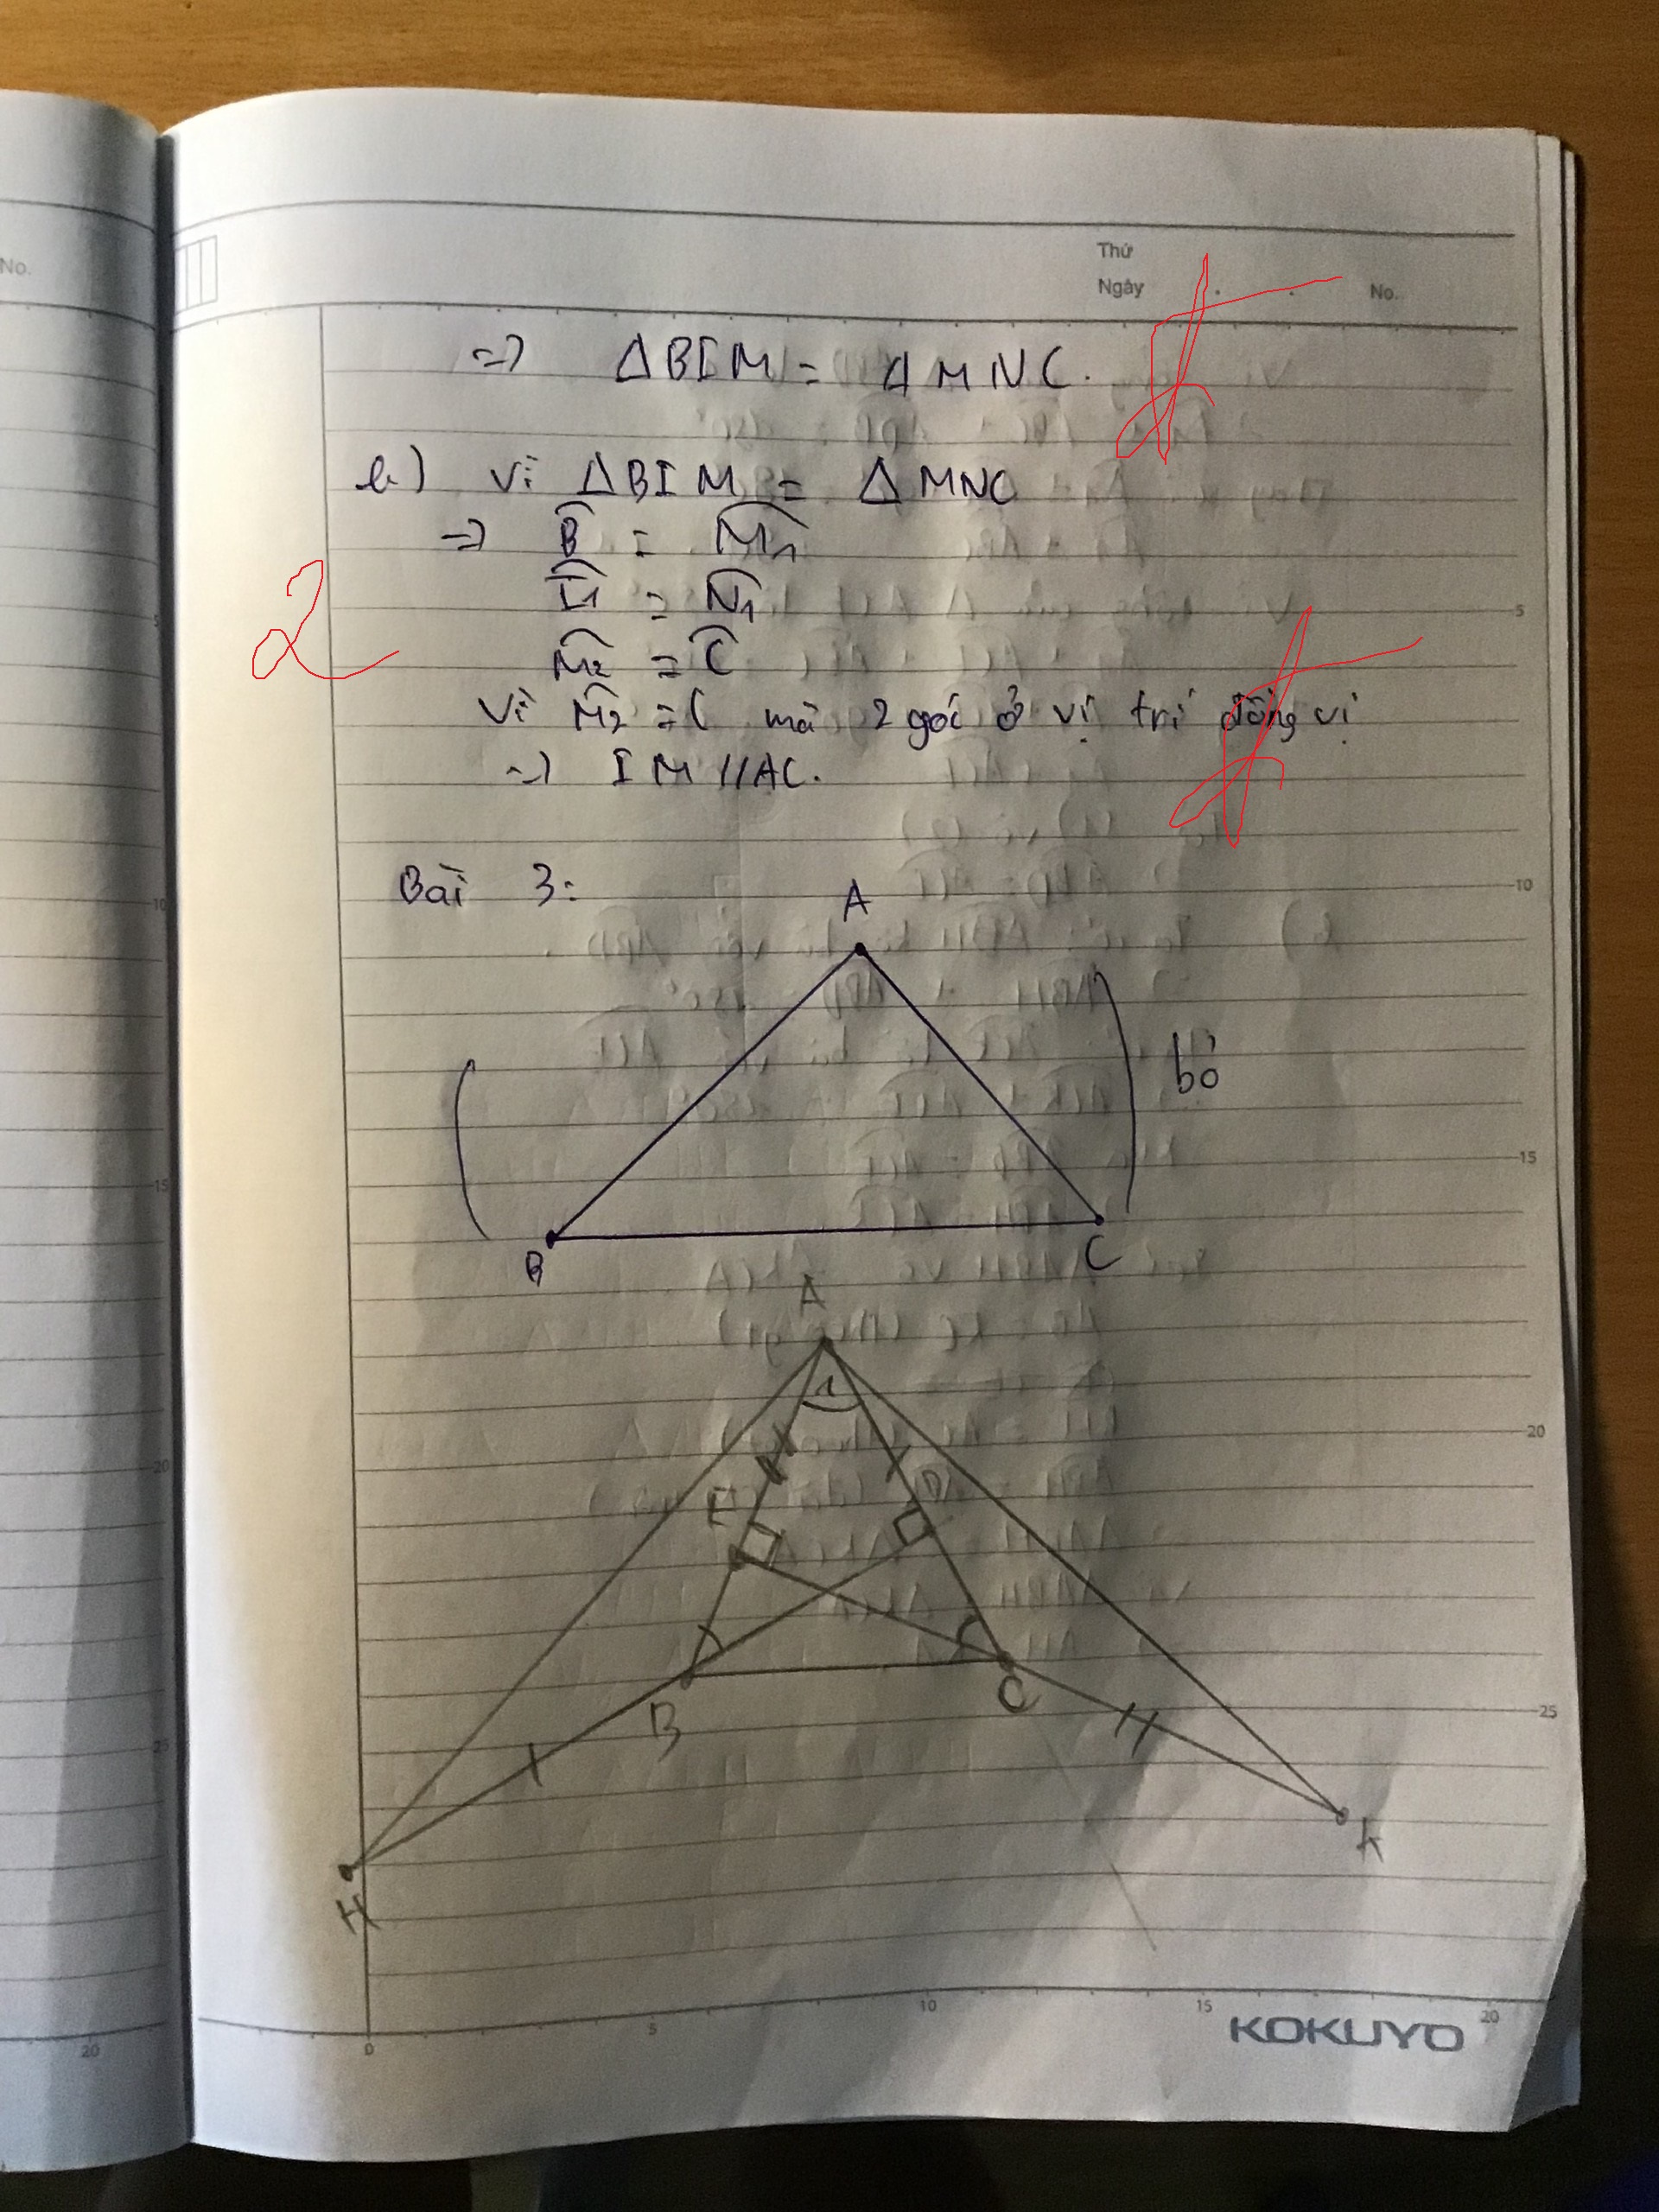 No.
Thứ
Ngày . . No.
=> ΔBIM = ΔMNC.
b) Vì ΔBIM = ΔMNC
=> B̂ = M̂₁
Î₁ = N̂₁
2
M̂₂ = Ĉ
Vì M̂₂ = C mà 2 góc ở vị trí đồng vị
=> IM // AC.
Bài 3:
A
bỏ
B C
A
1
E D
B C
H K
5
10
15
20
25
0 5 10 15 20
KOKUYO
15
20
25
20